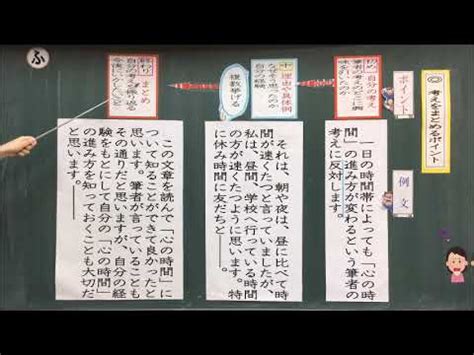 ◎考えをまとめるポイント
ポイント
例文
初め
自分の考え
一日の時間帯によっても「心の時
間」の進み方が変わるという筆者の
考えに反対します。
中
理由や具体例
なぜそう思ったのか
自分の経験
複数挙げる
それは、朝や夜は、昼に比べて時
間が速くたつと言っていましたが、
私は、昼間、学校へ行っている時間
の方が速くたつように思います。特
に休み時間に友だちと――。
終わり
まとめ
この文章を読んで「心の時間」に
ついて知ることができて良かったと
思います。筆者が言っていることも
その通りだと思いますが、自分の経
験をもとにして自分の「心の時間」
の進み方を知っておくことも大切だ
と思います。――
ふ